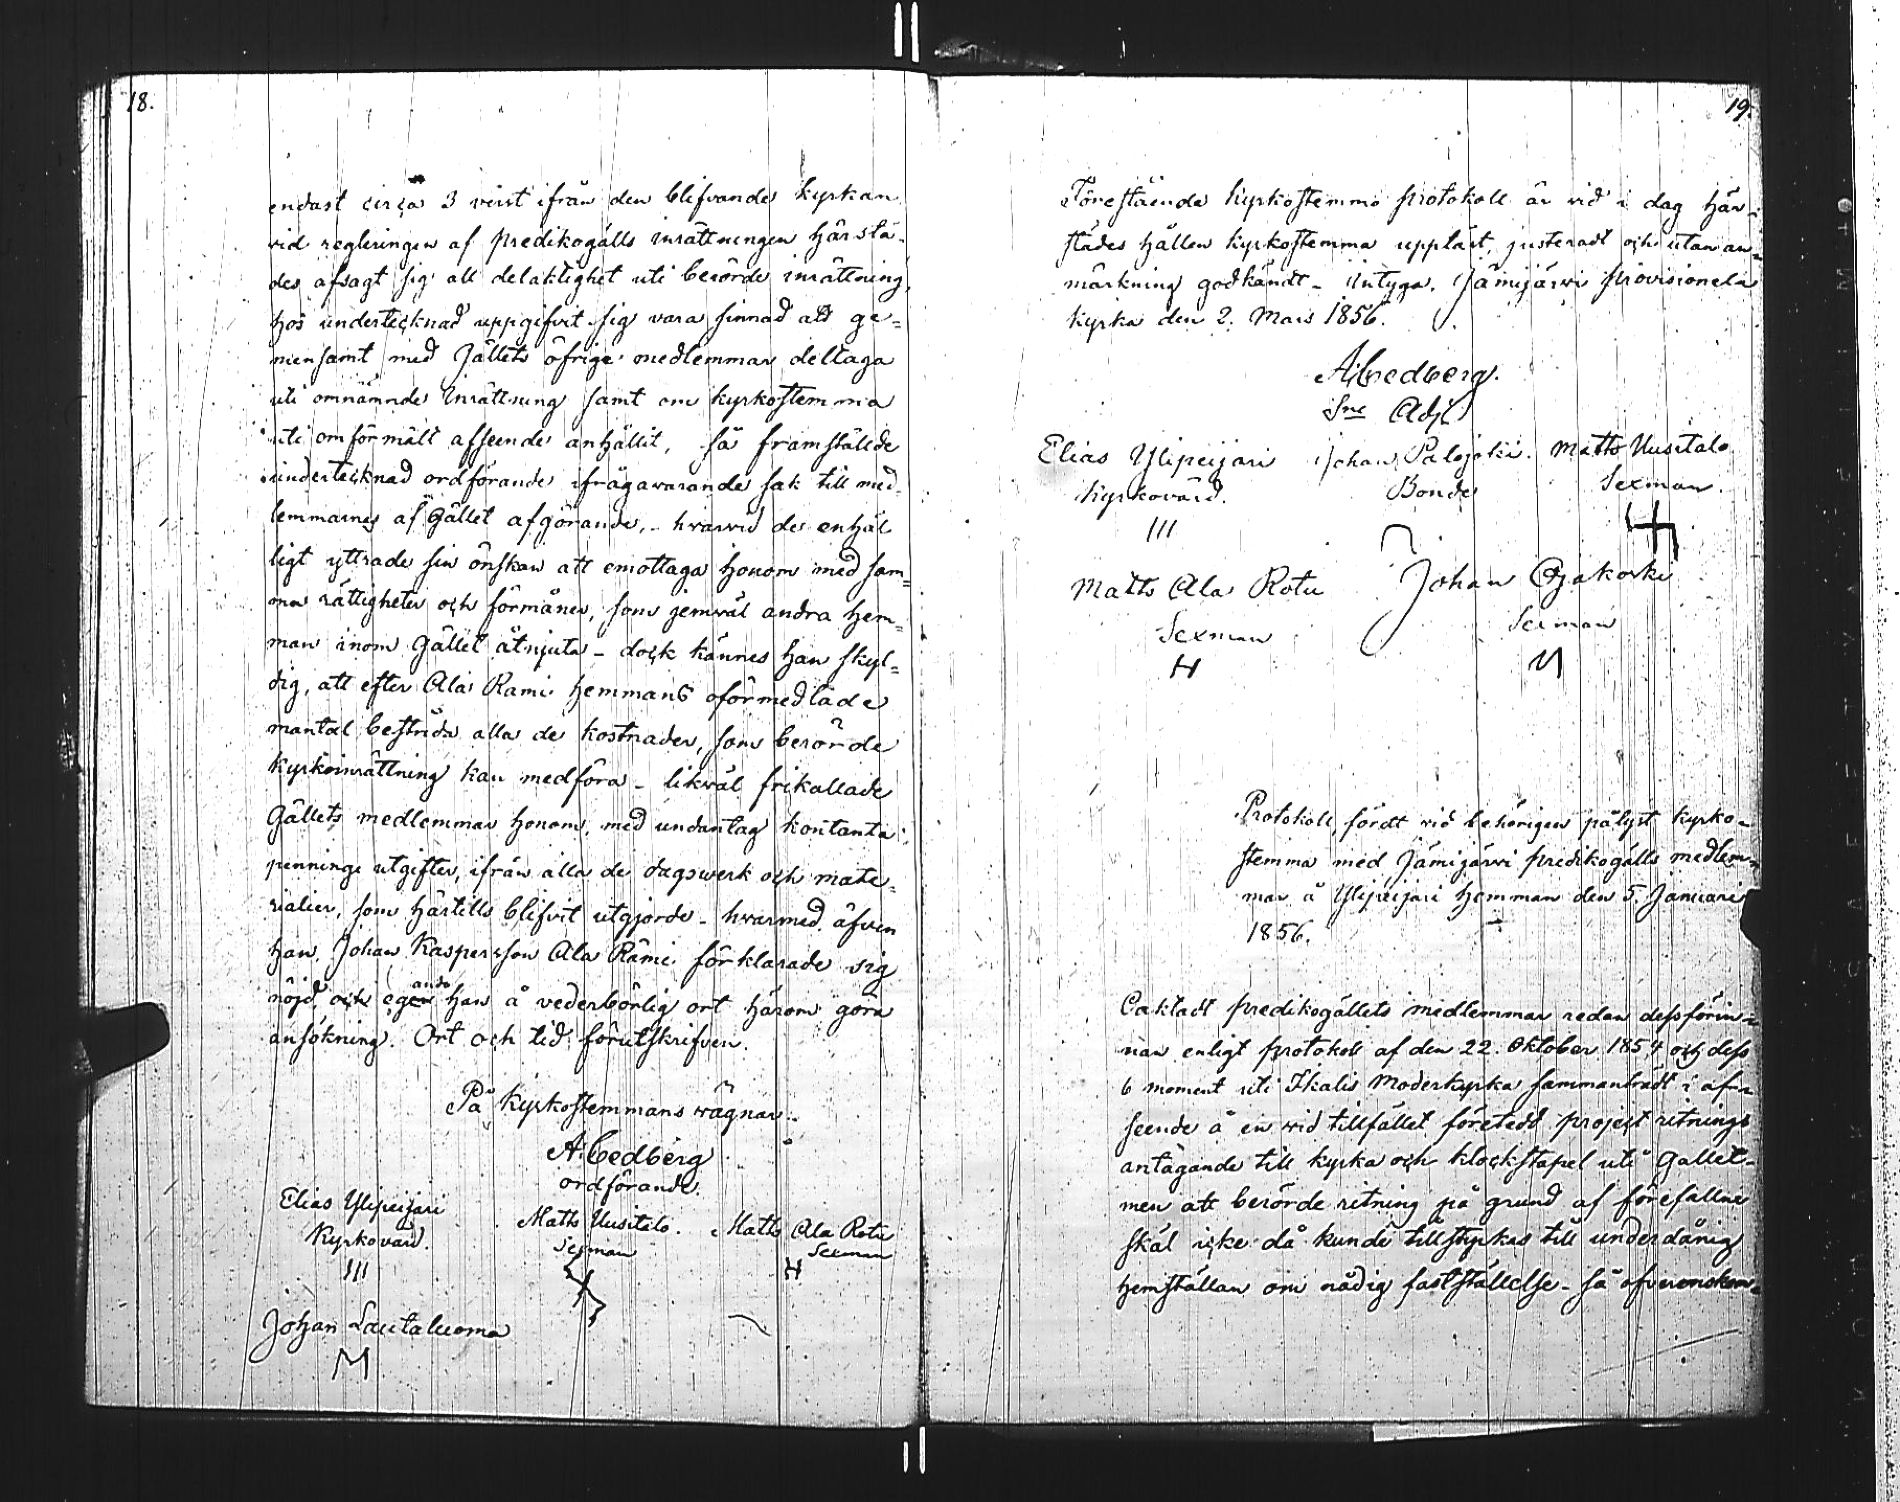 18.
endast circa 3 verst ifrån den blifvande kyrkan
vid regleringen af predikogälls inrättningen härstä-
des afsagt sig all delaktighet uti berörde inrättning,
hos undertecknad uppgifvit sig vara sinnad att ge=
mensamt med Gällets öfrige medlemmar deltaga
uti omnämnde inrättning samt om kyrkostemma
uti omförmält afseende anhållit, så framställde
undertecknad ordförande ifrågavarande sak till med-
lemmarnes af Gället afgörande, - hvarvid de enhäl
ligt yttrade sin önskan att emottaga honom med sam=
ma rättigheter och förmåner, som jemväl andra hem=
man inom Gället åtnjuta - dock kännes han skyl=
dig, att efter Ala Rami hemmans oförmedlade
mantal bestrida alla de kostnader, som berörde
kyrkoinrättning kan medföra - likväl frikallade
Gällets medlemmar honom, med undantag kontanta
penninge utgifter, ifrån alla de dagswerk och mate-
rialier, som härtills blifvit utgjorde - hvarmed äfven
han, Johan Kaspersson Ala Rämi förklarade sig
nöjd, och egen han å vederbörlig ort härom göra
ansökning. Ort och tid förutskrifven.
På Kyrkostemmans vägnar:
A. Cedberg
ordförande.
Elias Ylipeijari
Kyrkovärd.
III
Matts Uusitalo.
Sexman
Matts Ala Rotu
Sexman
H
Johan Lautaluoma
M
19.
Förestående Kyrkostemmo protokoll är vid i dag här-
städes hållen kyrkostemma uppläst, justeradt och utan an-
märkning godkändt - intyga. Jämijärvi provisionela
kyrka den 2. Mars 1856.
A. Cedberg.
Sne Adj.
Elias Ylipeijari
Kyrkovärd.
III
Johan Palojoki.
Bonde
Matts Uusitalo
Sexman.
Matts Ala Rotu
Sexman
H
Johan Ojakoski
Sexman
Protokoll, fördt vid behörigen pålyst kyrko-
stemma med Jämijärvi predikogälls medlem-
mar å Ylipeijari hemman den 5. Januari
1856.
Oaktadt predikogällets medlemmar redan dessförin-
nan enligt protokoll af den 22. Oktober 1854 och dess
6 moment uti Ikalis Moderkyrka sammanträdt i af-
seende å en vid tillfället företedd project ritnings
antagande till kyrka och klockstapel uti Gället-
men att berörde ritning på grund af förefallne
skäl icke då kunde tillstyrkas till underdånig
hemställan om nådig fastställelse - så öfverenskom-